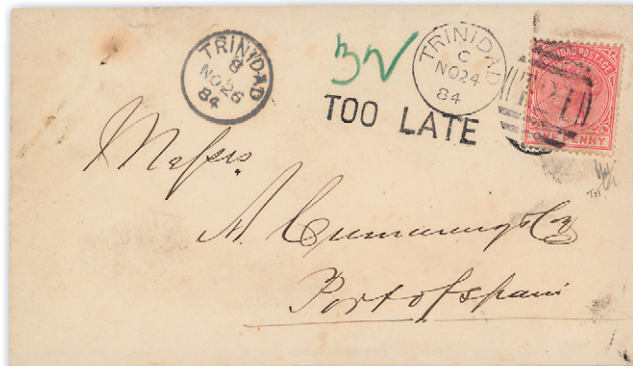 TRINIDAD
8
NO26
84
TRINIDAD
C
NO24
84
TOO LATE
TRINIDAD POSTAGE
ONE PENNY
Messrs
A. Cummings & Co
Port of Spain